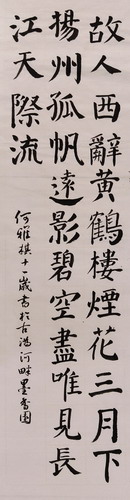 故人西辭黃鶴樓煙花三月下
揚州孤帆遠影碧空盡唯見長
江天際流
何雅棋十一歲書於古鴻河畔墨香園